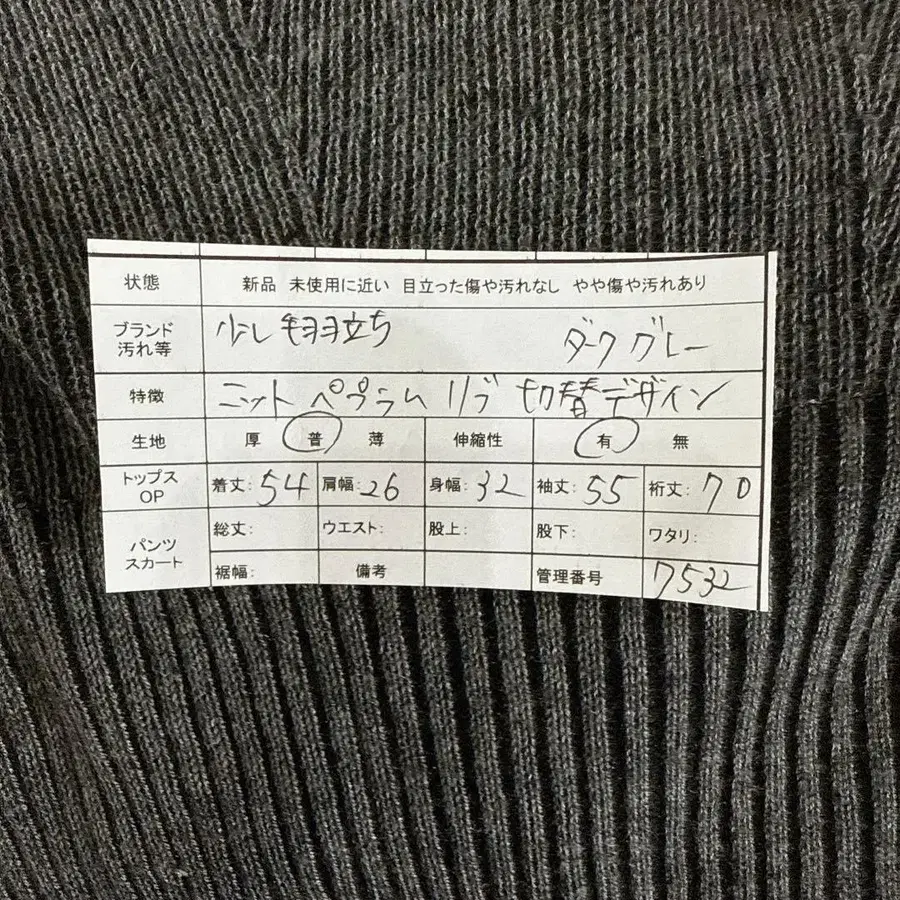 状態 新品 未使用に近い 目立った傷や汚れなし やや傷や汚れあり
ブランド 汚れ等 少し毛羽立ち ダークグレー
特徴 ニット ペプラム リブ 切替デザイン
生地 厚 普 薄 伸縮性 有 無
トップス OP 着丈: 54 肩幅: 26 身幅: 32 袖丈: 55 裄丈: 70
パンツ スカート 総丈: ウエスト: 股上: 股下: ワタリ:
裾幅: 備考 管理番号 7532